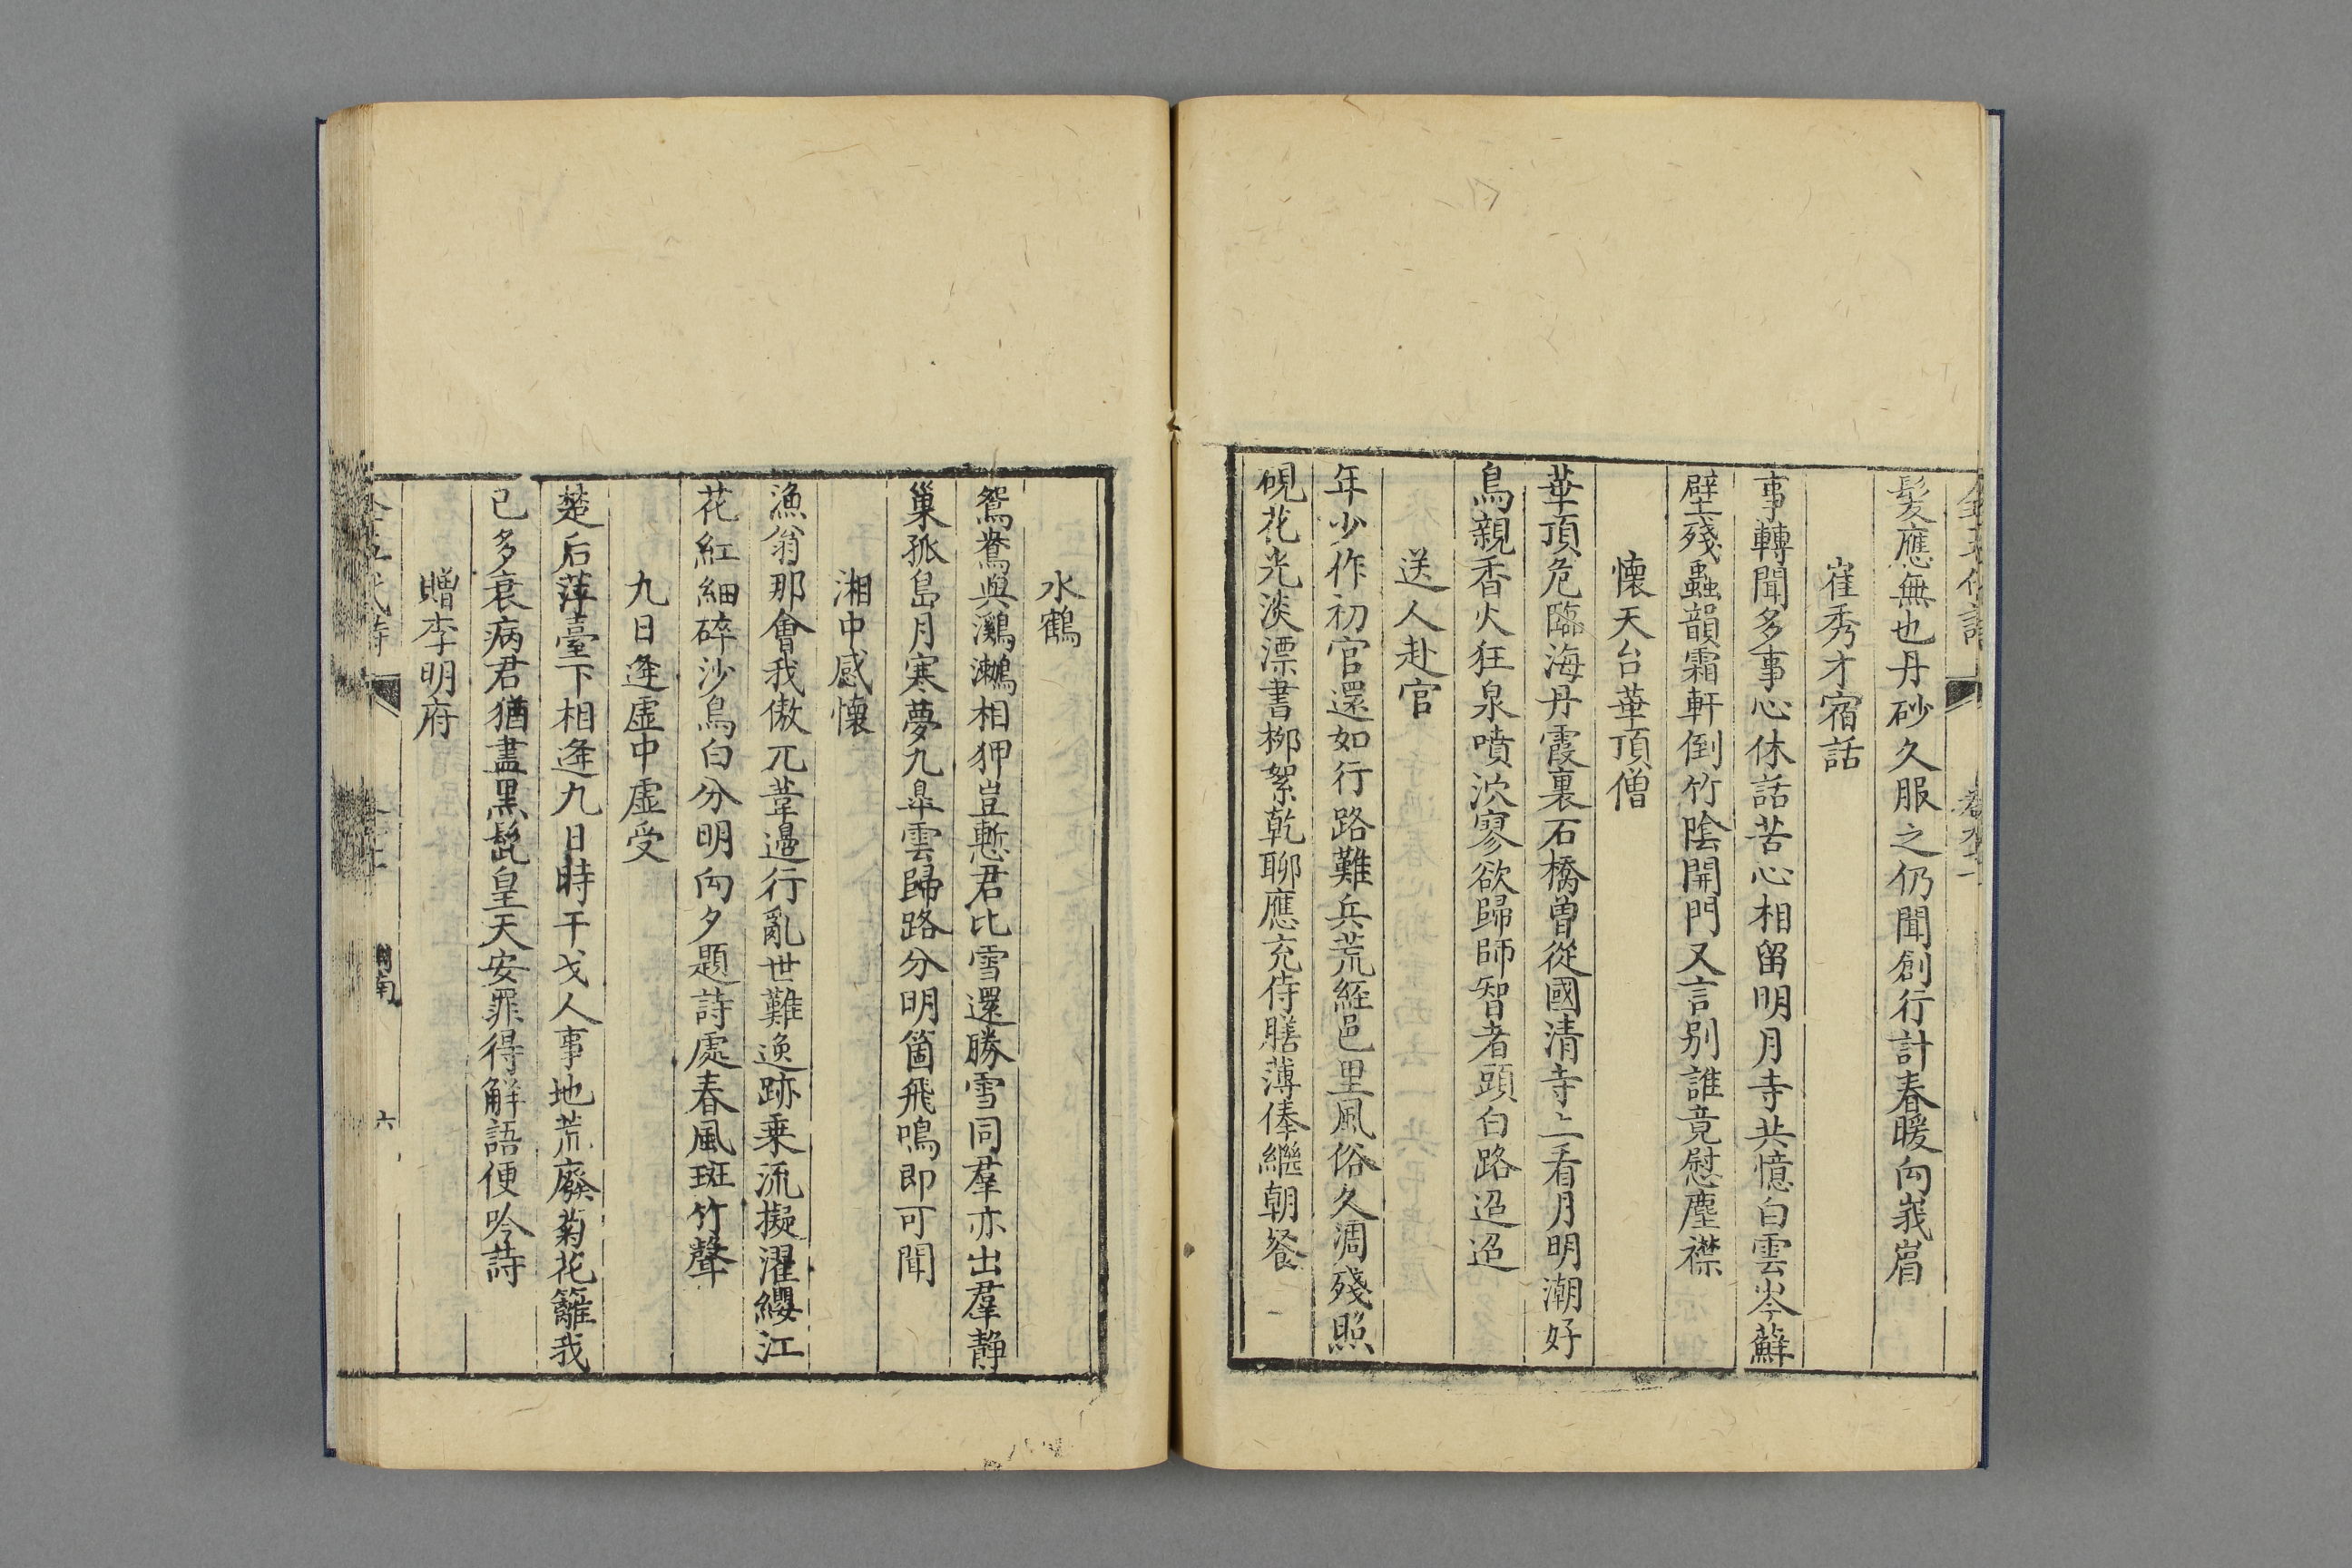 全五代詩
卷九十
髪應無也丹砂久服之仍聞創行計春暖向峩眉
崔秀才宿話
事轉聞多事心休話苦心相留明月寺共憶白雲岑蘚
壁殘蟲韻霜軒倒竹陰開門又言别誰竟慰塵襟
懷天台華頂僧
華頂危臨海丹霞裏石橋曾從國清寺上看月明潮好
鳥親香火狂泉噴泬寥欲歸師智者頭白路迢迢
送人赴官
年少作初官還如行路難兵荒經邑里風俗久凋殘照
硯花光淡漂書栁絮乾聊應充侍膳薄俸繼朝餐
水鶴
鴛鴦與鸂鷘相狎豈慙君比雪還勝雪同羣亦出羣靜
巢孤島月寒夢九臯雲歸路分明箇飛鳴即可聞
湘中感懷
漁翁那會我傲兀葦邊行亂世難逸跡乗流擬濯纓江
花紅細碎沙鳥白分明向夕題詩處春風斑竹聲
九日逢虛中虛受
楚后萍臺下相逢九日時干戈人事地荒廢菊花籬我
已多衰病君猶盡黑髭皇天安罪得解語便吟詩
贈李明府
全五代詩
湖南
六